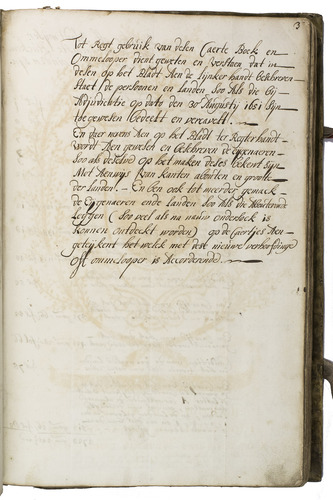 13
Tot Regt gebruik van desen Caerte Boek en
Ommelooper dient geweten en verstaen, dat in
desen op het Bladt Aen de Linkerhandt beschreven
Staet de personen en Landen soo Als die bij
Adjudicktie op dato den 30 Augusty 1681 Sijn
toegewesen en verkavelt.
En daer neven Aen op het Bladt ter Regterhandt
Wordt Aen gewesen en beschreven de Eygenaeren
Soo als deselvde op het maken deses bekent sijn
Met Aenwijs van kanten abouten en groote
der Landen. En Ben ook tot meerder gemack
de Eygenaeren ende Landen Soo Als die
Leggen (Soo veel als na nauw ondersoek is
konnen ontdeckt worden) op de Caertjes Aen-
geteijkent het welck met dese nieuwe
oft ommelooper is Accorderende